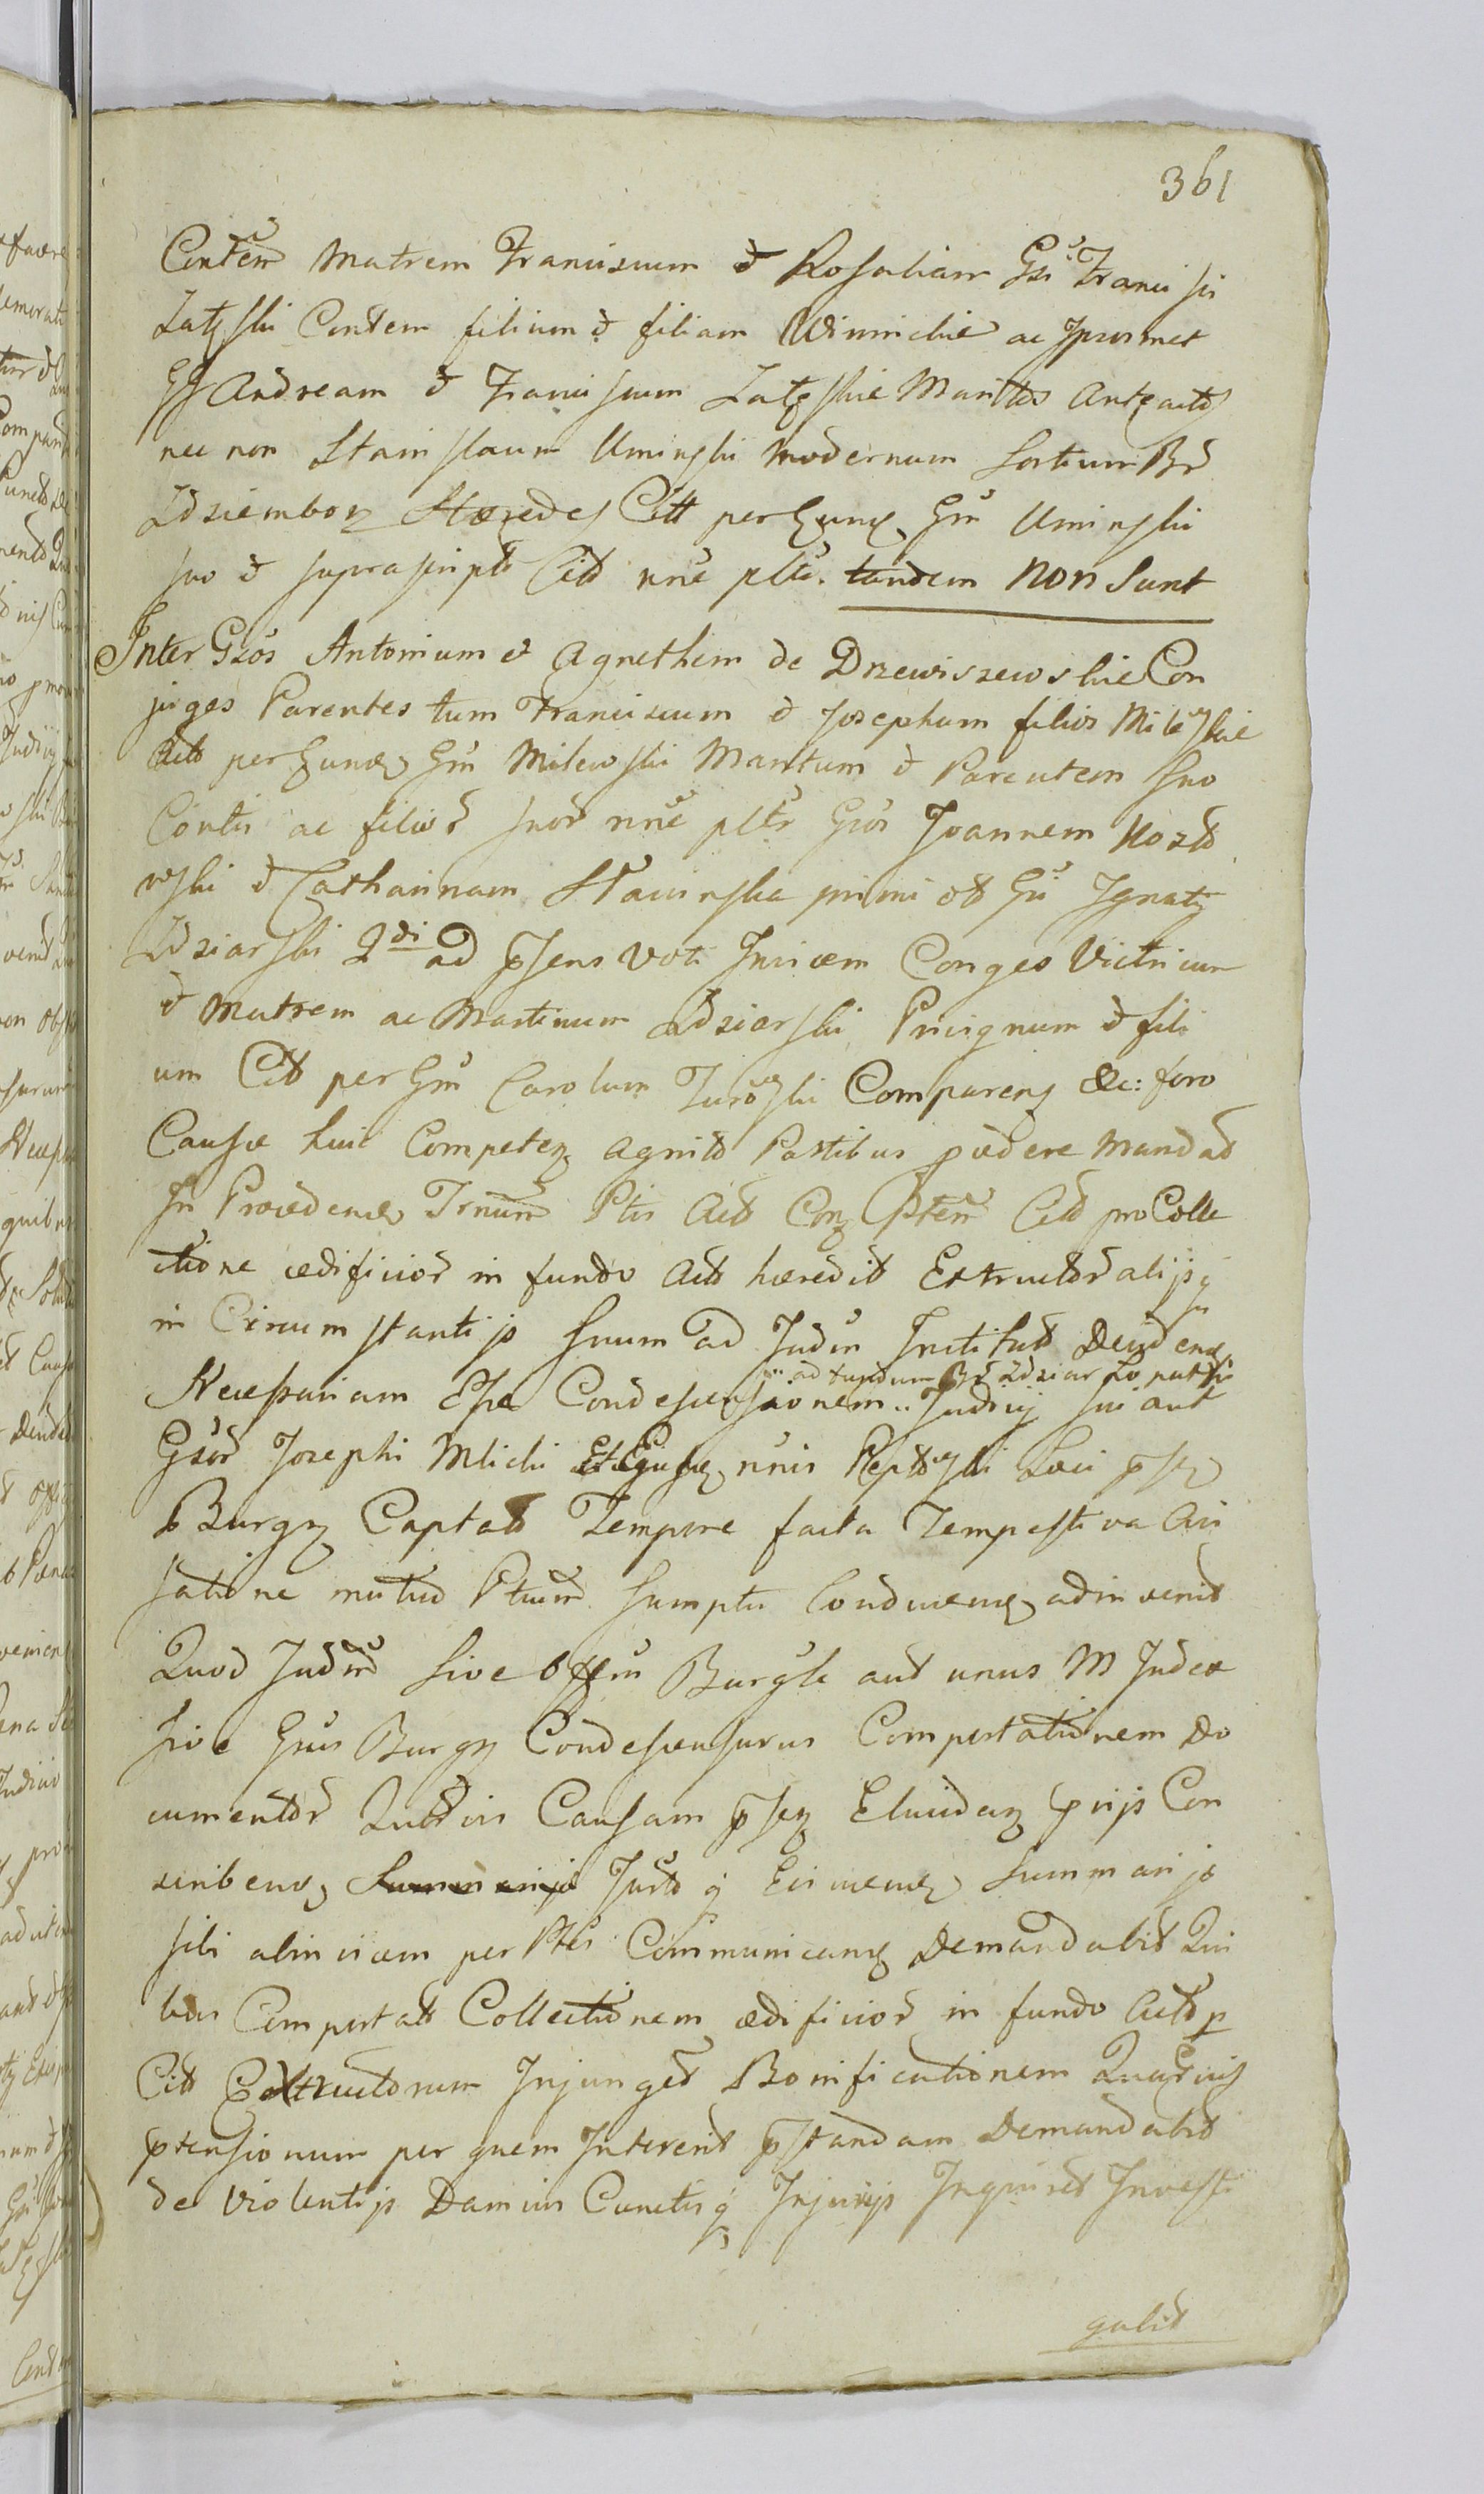 361
Contem Matrem Franciscum et Rosaliam Gsi Francisci
Zatęski Contem filium et filiam Winnickie ac Ipsosmet
GG Andream et Franciscum Zatęskie Maritos Anteactos
nec non Stanislaum Uminski modernum Sortium Br
Zdziemborz Hæredes Citt per Eund Gm Uminski
suo et suprascripto Citt nne pltr. tandem non Sunt
Inter Gsos Antonium et Agnethem de Drzewiszewskie Con
juges Parentes tum Franciscum et Josephum filios Milewskie
Acto per Eund Gm Milewski Maritum et Parentem Suo
Contis ac filior suor nne pltr Gsos Joannem Kozło
wski et Catharinam Sławinska primi ob Gsi Ignatij
Zdziarski 2di ad psens voti Invicem Conges Victricum
et Matrem ac Martinum Zdziarski Privignum et fili
um Citt per Gm Carolum Turowski Comparens &c: foro
Causæ huic Competen Agnito Partibus pcedere Mandat
In Procedend Trnum Ptis Act Con Ptem Citt pro Colle
ctione ædificior in fundo Acto hæredit Extructor alijsq
in Circumstantijs Suum ad Judm Institut Decidend
ad fundum Br Zdziar Łopatki
Necessariam Esse Condescensionem .. Judicij sui aut
Gsor Josephi Mlicki Et nris Loci psen
Burgen Captato Tempore facta Tempestiva Avi
satione mutuo Ptium Sumptu Conducend adinvenit
Quod Judm Sive Offm Burgle aut unus M Judex
sive Gsus Burgen Condescensurus Comportationem Do
cumentor Quorvis Causam psen Elucidan pvijs Con
scribend Summarijs Jurto q Evincend Summarijs
sibi abinvicem per Ptes Communicand Demandabit Qui
bus Comportatis Collectionem ædificior in fundo Acto p
Citt Extructorum Injunget Bonificationem Quarvis
ptensionum per quem Intererit pstandam Demandabit
de Violentijs Damnis Cunctisq Injurijs Inquiret Investi
gabit